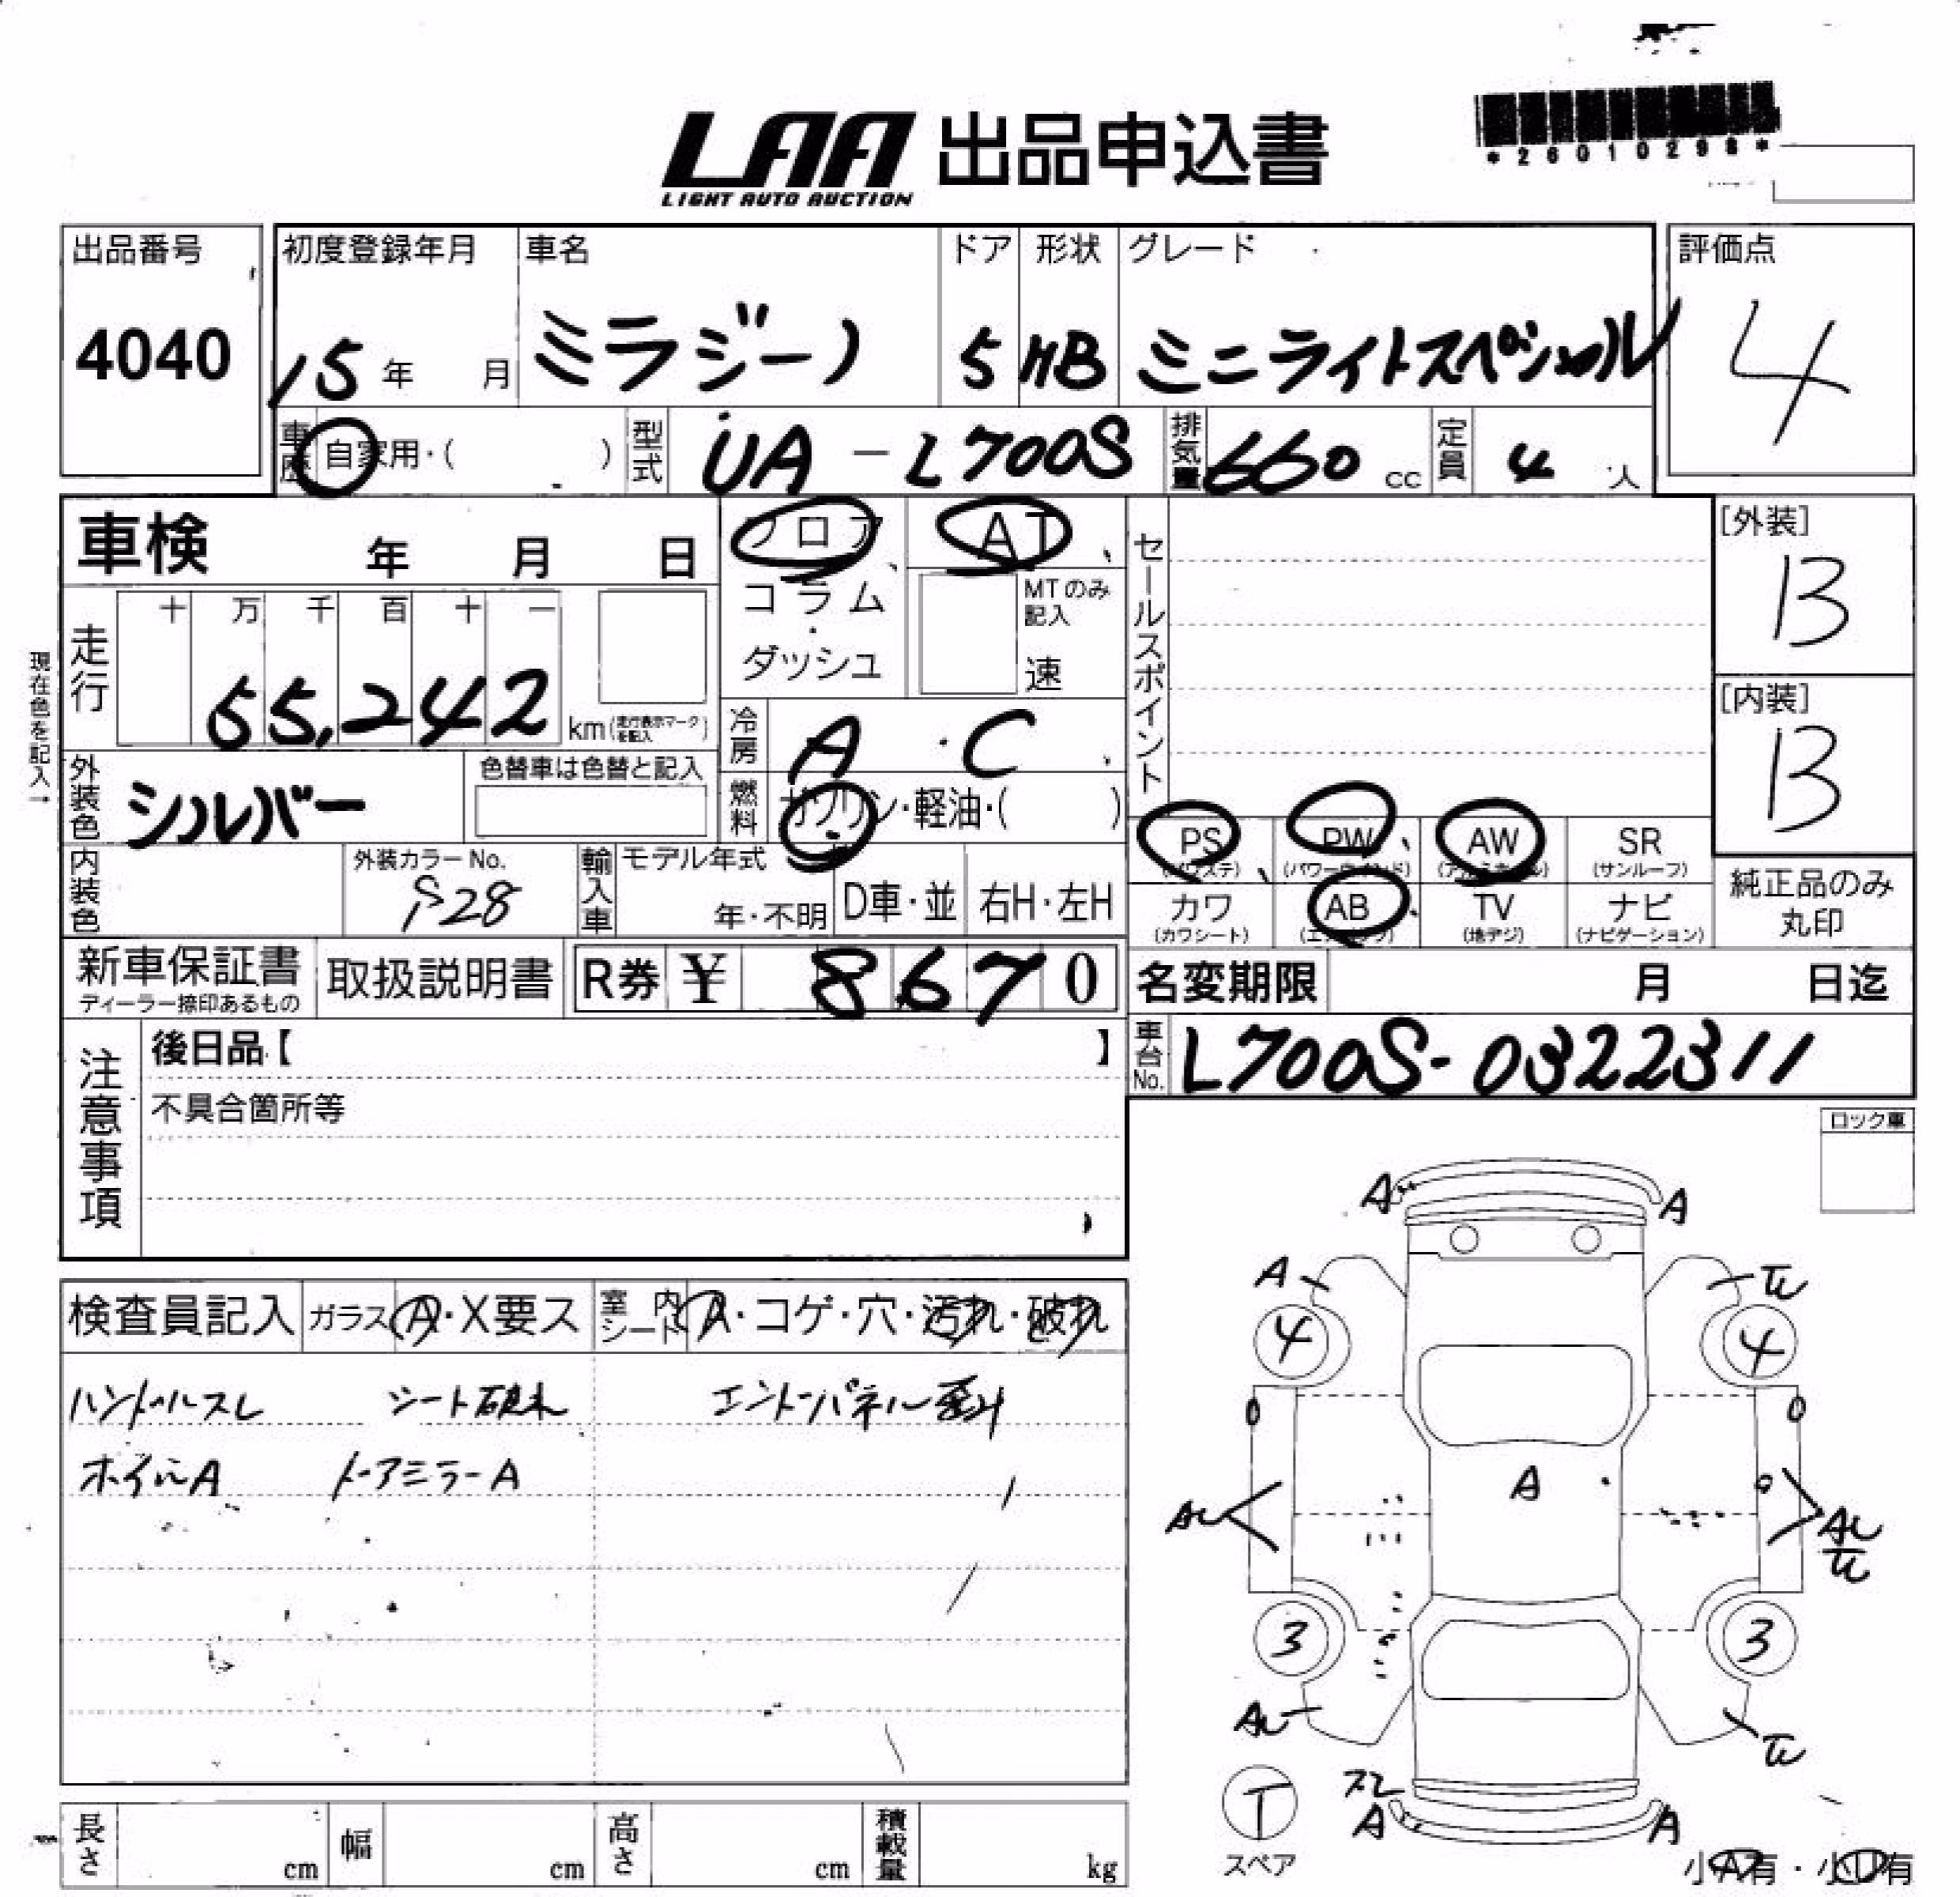 LAA 出品申込書
LIGHT AUTO AUCTION
*26010298*
出品番号 初度登録年月 車名 ドア 形状 グレード 評価点
4040 15年 月 ミラジーノ 5 HB ミニライトスペシャル 4
車歴 自家用・( ) 型式 UA-L700S 排気量 660 cc 定員 4 人
車検 年 月 日 フロア AT [外装]
コラム・ダッシュ MTのみ記入 速 セールスポイント B
現在色を記入→
走行 十 万 千 百 十 一
55,242 km(走行表示マークを記入) [内装]
冷房 A・C B
外装色 シルバー 色替車は色替と記入 燃料 ガソリン・軽油・( )
PS (パワステ) PW (パワーウインド) AW (アルミホイール) SR (サンルーフ)
内装色 外装カラーNo. S28 輸入車 モデル年式 年・不明 D車・並 右H・左H
カワ (カワシート) AB (エアバッグ) TV (地デジ) ナビ (ナビゲーション) 純正品のみ丸印
新車保証書 ディーラー捺印あるもの 取扱説明書 R券 ¥ 8670 名変期限 月 日迄
注意事項 後日品【 】 車台No. L700S-0322311
不具合箇所等 ロック車
A A
A
4 4
検査員記入 ガラス A・X要ス 室内シート A・コゲ・穴・汚れ・破れ
ハンドルスレ シート破れ
ホイールA ドアミラーA
A
3 3
A A
T
スペア
長さ cm 幅 cm 高さ cm 積載量 kg
小A有・小U有